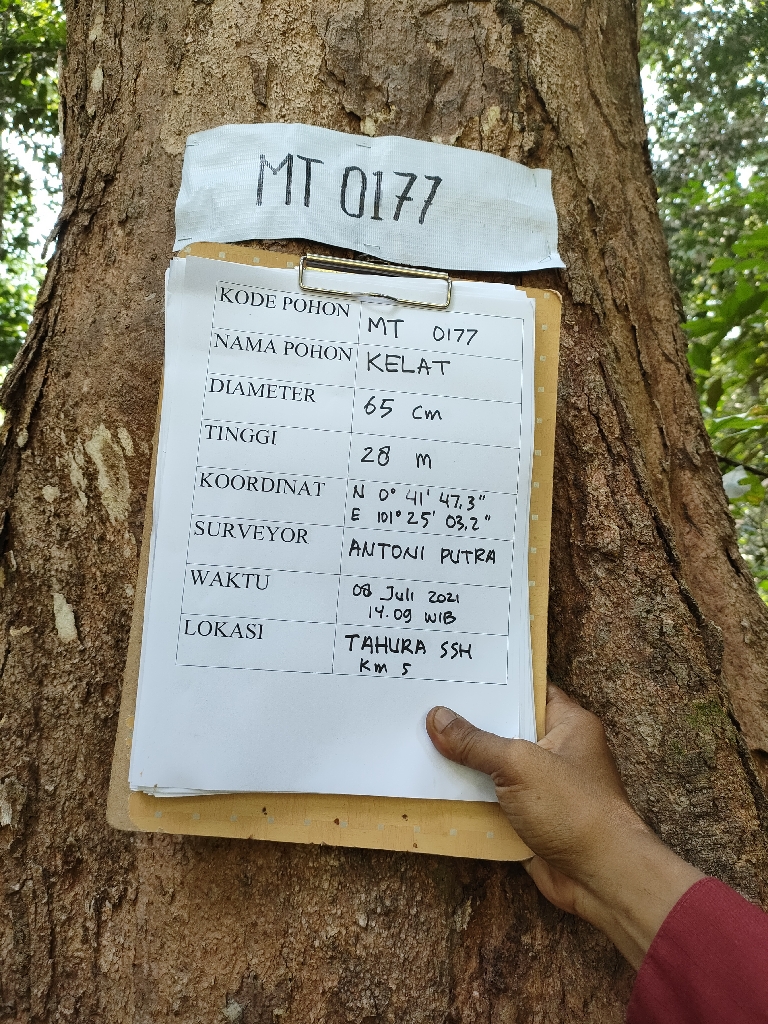 MT 0177
KODE POHON MT 0177
NAMA POHON KELAT
DIAMETER 65 cm
TINGGI 28 m
KOORDINAT N 0° 41' 47.3"
E 101° 25' 03.2"
SURVEYOR ANTONI PUTRA
WAKTU 08 Juli 2021
14.09 WIB
LOKASI TAHURA SSH
Km 5